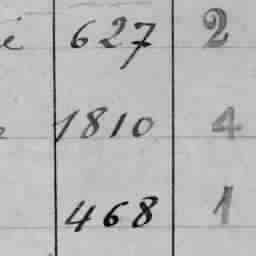 627 2
1810 4
468 1